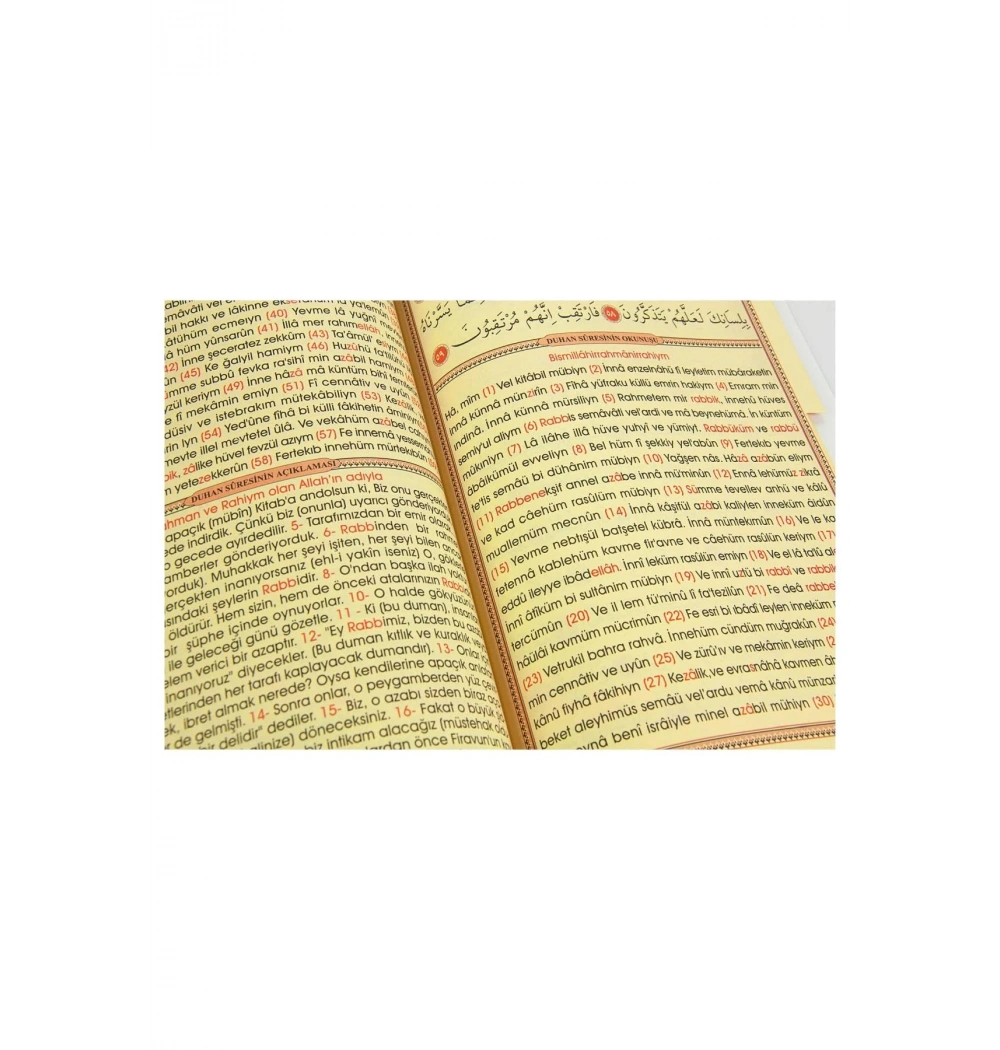 ve lâkinne ekserahüm lâ ya'lemun
bil hakkı ve (40) Yevme lâ yuğnî
hüm yünsarûn (41) İllâ mer rahımellâh, innehû
42) İnne şeceratez zekkûm (43) Ta'âmül' esiym
(45) Ke ğalyil hamiym (46) Huzûhü fa'tilûhü
sümme subbû fevka ra'sihî min azâbil hamiym
(49) İnne hâzâ mâ küntüm bihî
fî mekâmin emiyn (51) Fî cennâtiv ve uyûn
ve istebrakım mütekâbiliyn (53) Kezâlik,
(54) Yed'ûne fîhâ bi külli fâkihetin âminiyn
illel mevtetel ûlâ. Ve vekâhüm azâbel
zâlike hüvel fevzül aziym (57) Fe innemâ
yetezekkerûn (58) Fertekıb innehüm mürtekıbûn
DUHAN SÛRESİNİN AÇIKLAMASI
Rahman ve Rahiym olan Allah'ın adıyla
apaçık (mübîn) Kitab'a andolsun ki, Biz onu gerçekten
indirdik. Çünkü biz (onunla) uyarıcı gönderiyorduk
o gecede ayırdedilir. 5- Tarafımızdan bir emir olarak
gönderiyorduk. 6- Rabbinden bir rahmet
Muhakkak her şeyi işiten, her şeyi bilen ancak
gerçekten inanıyorsanız (ehl-i yakîn iseniz) O, göklerin
şeylerin Rabbidir. 8- O'ndan başka ilah yoktur
öldürür. Hem sizin, hem de önceki atalarınızın Rabbi
şüphe içinde oynuyorlar. 10- O halde gökyüzünün
ile geleceği günü gözetle. 11 - Ki (bu duman), insanları
elem verici bir azaptır. 12- "Ey Rabbimiz, bizden bu azabı
inanıyoruz" diyecekler. (Bu duman kıtlık ve kuraklık ve
her tarafı kaplayacak dumandır). 13- Onlar için
ibret almak nerede? Oysa kendilerine apaçık anlatan
gelmişti. 14- Sonra onlar, o peygamberden yüz çevirdiler
bir delidir" dediler. 15- Biz, o azabı sizden biraz
döneceksiniz. 16- Fakat o büyük
biz intikam alacağız (müstehak
önce Firavun'un
بِلِسَانِكَ لَعَلَّهُمْ يَتَذَكَّرُونَ ٥٨ فَارْتَقِبْ اِنَّهُمْ مُرْتَقِبُونَ ٥٩
DUHAN SÛRESİNİN OKUNUŞU
Bismillâhirrahmânirrahiym
Hâ, mîm (1) Vel kitâbil mübiyn (2) İnnâ enzelnâhü fî leyletim mübâraketin
innâ künnâ münzirîn (3) Fîhâ yüfraku küllü emrin hakiym (4) Emram min
ındinâ. İnnâ künnâ mürsiliyn (5) Rahmetem mir rabbik, innehû hüves
semiyul aliym (6) Rabbis semâvâti vel'ardı ve mâ beynehümâ. İn küntüm
mûkıniyn (7) Lâ ilâhe illâ hüve yuhyî ve yümiyt. Rabbüküm ve rabbü
âbâikümül evveliyn (8) Bel hüm fî şekkiy yel'abûn (9) Fertekıb yevme
te'tîs semâü bi dühânim mübiyn (10) Yağşen nâs. Hâzâ azâbün eliym
(11) Rabbenekşif annel azâbe innâ mü'minûn (12) Ennâ lehümüz zikrâ
ve kad câehüm rasûlüm mübiyn (13) Sümme tevellev anhü ve kâlû
muallemüm mecnûn (14) İnnâ kâşifül azâbi kaliylen inneküm âidûn
(15) Yevme nebtışül batşetel kübrâ. İnnâ müntekımûn (16) Ve le kad
fetennâ kablehüm kavme fir'avne ve câehüm rasûlün keriym (17)
eddû ileyye ibâdellâh. İnnî leküm rasûlün emiyn (18) Ve el lâ ta'lû
innî âtîküm bi sultânim mübiyn (19) Ve innî uztü bi rabbî ve rabbiküm
tercümûn (20) Ve il lem tü'minû lî fa'tezilûn (21) Fe deâ rabbehû
hâülâi kavmüm mücrimûn (22) Fe esri bi ibâdî leylen inneküm
(23) Vetrukil bahra rahvâ. İnnehüm cündüm muğrakûn (24)
min cennâtiv ve uyûn (25) Ve zürûıv ve mekâmin keriym
kânû fiyhâ fâkihiyn (27) Kezâlik, ve evrasnâhâ kavmen
beket aleyhimüs semâü vel'ardu vemâ kânû münzarîn
benî isrâiyle minel azâbil mühiyn (30)